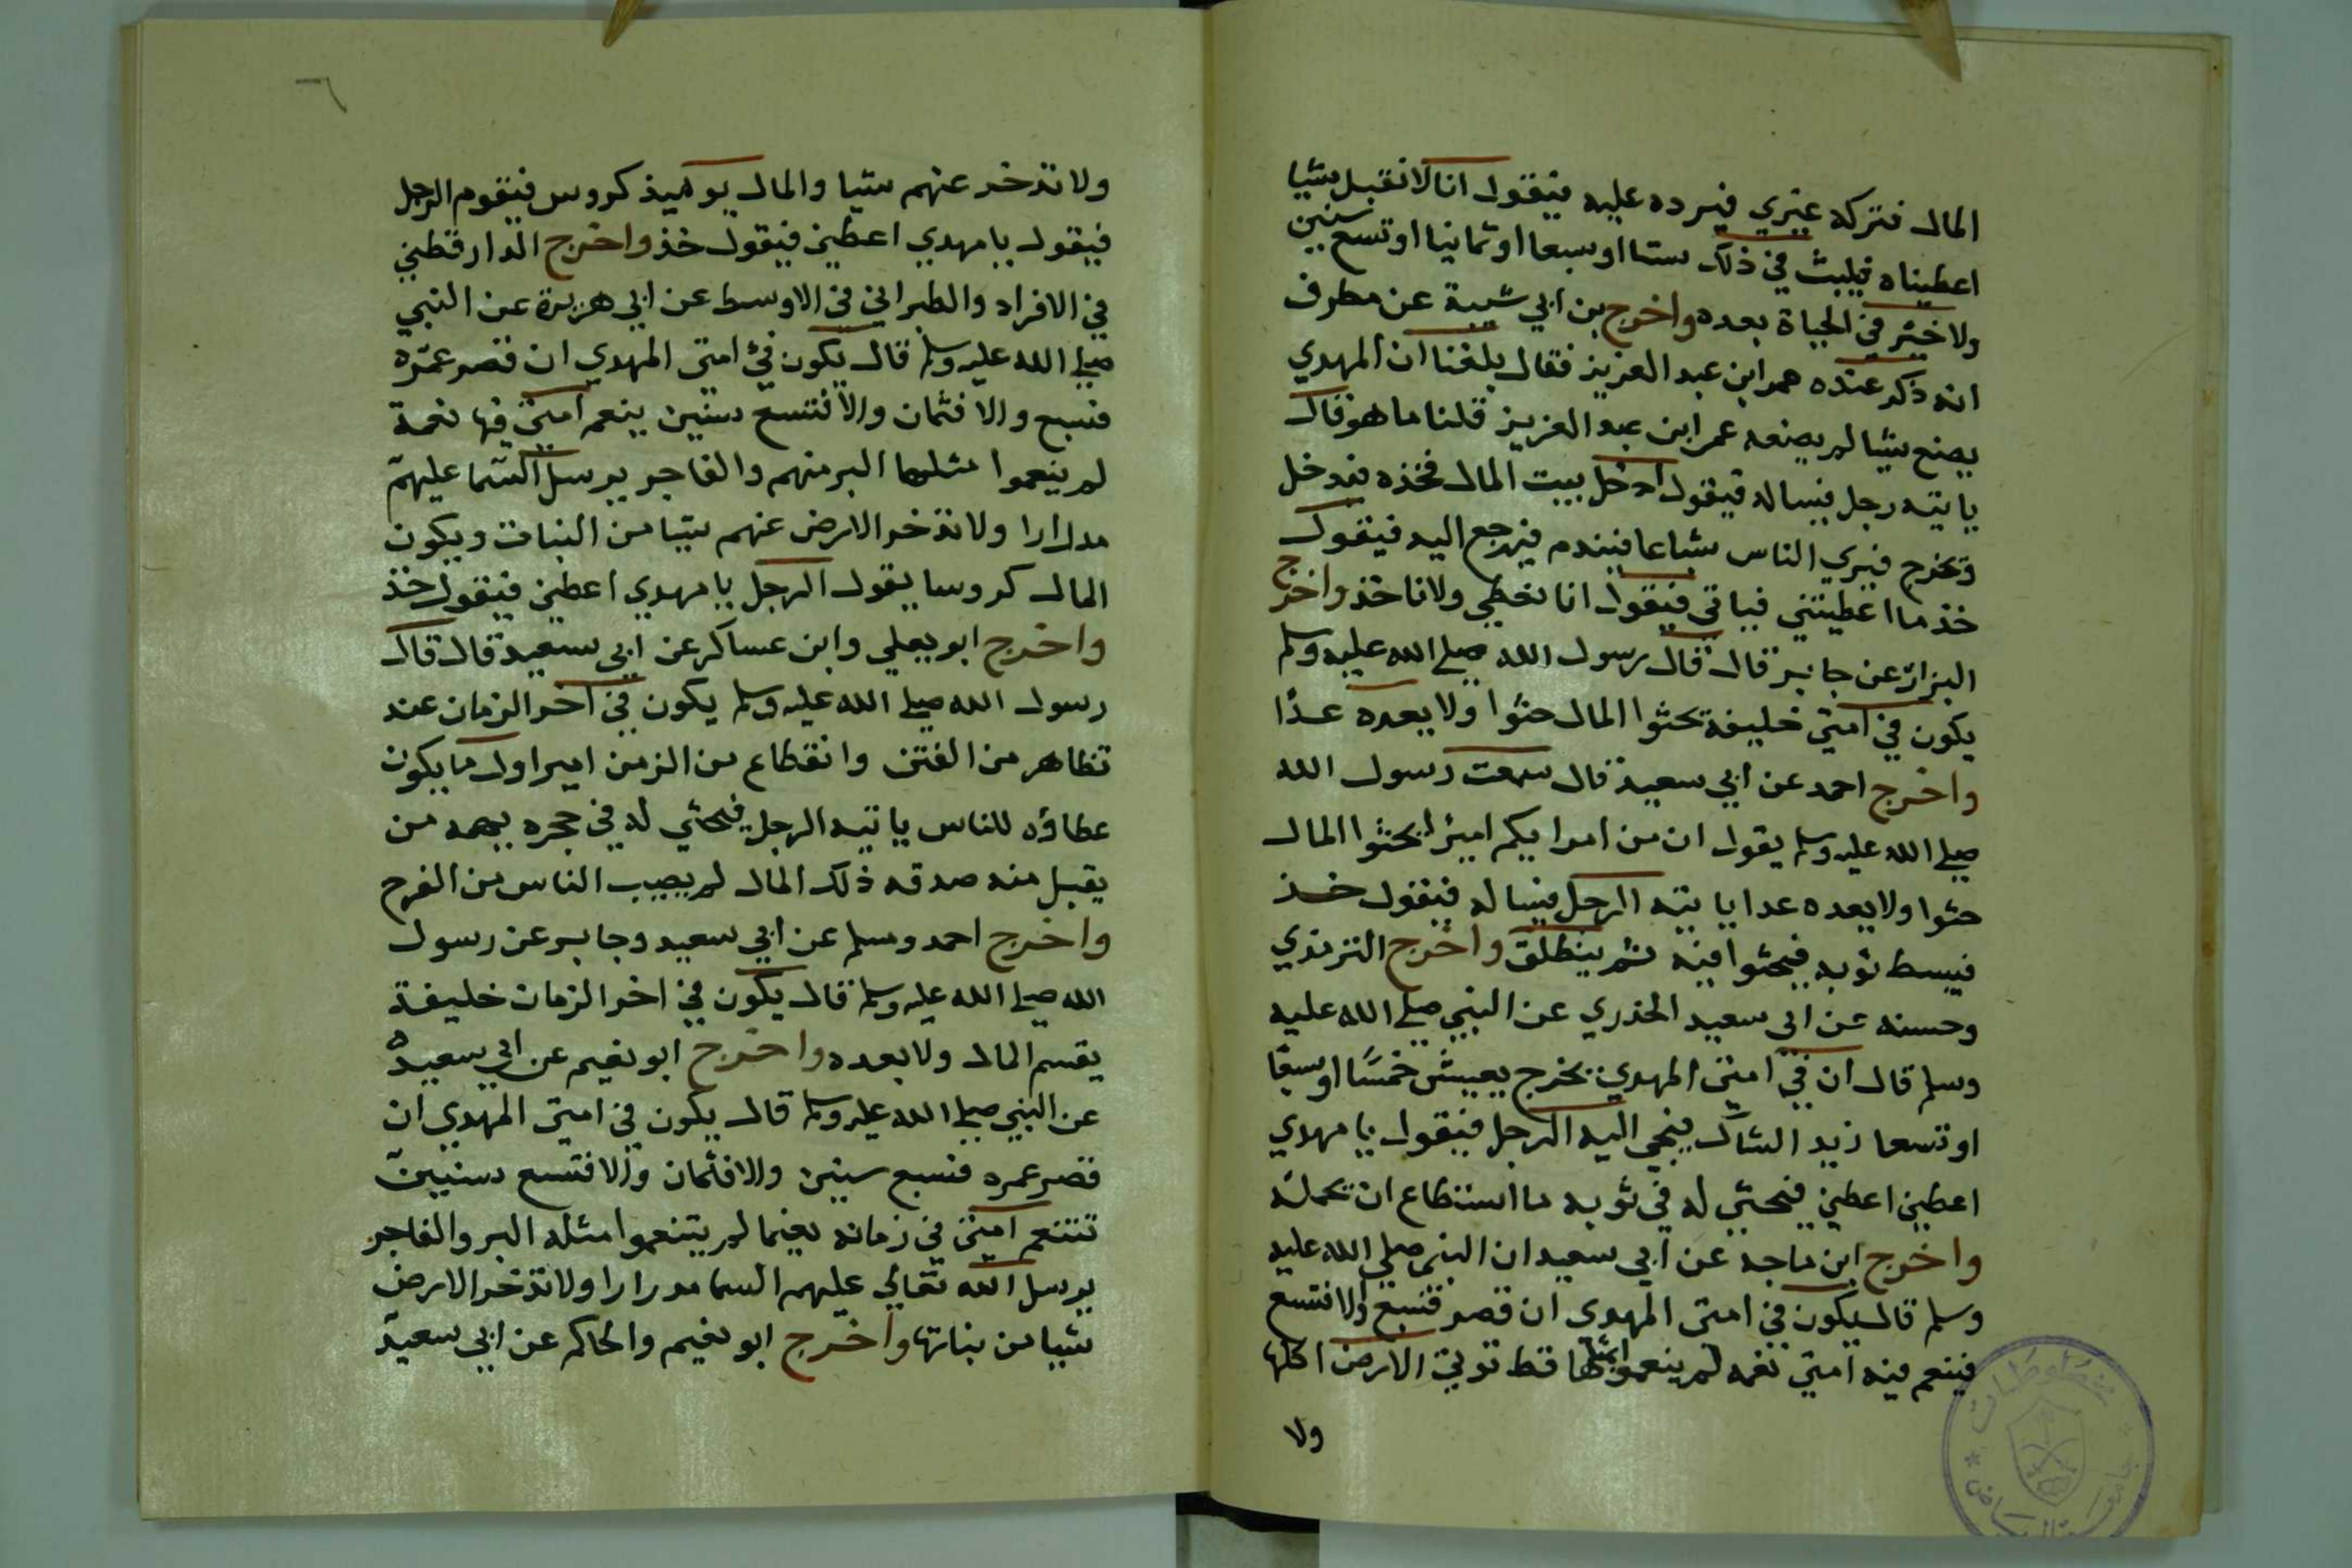 المال فتركه غيري فيرده عليه فيقول انا لا نقبل شيا
اعطيناه فيلبث في ذلك ستا او سبعا او ثمانيا او تسع سنين
ولا خير في الحياة بعده واخرج بن ابي شيبة عن مطرف
انه ذكر عنده عمر ابن عبد العزيز فقال بلغنا ان المهدي
يصنع شيا لم يصنعه عمر ابن عبد العزيز قلنا ما هو قال
ياتيه رجل فيساله فيقول ادخل بيت المال فخذه فدخل
ويخرج فيري الناس شباعا فيندم فيرجع اليه فيقول
خذ ما اعطيتني فياتي فيقول انا نعطي ولا ناخذ واخرج
البزار عن جابر قال قال رسول الله صلي الله عليه وسلم
يكون في امتي خليفة يحثوا المال حثوا ولا يعده عدّا
واخرج احمد عن ابي سعيد قال سمعت رسول الله
صلي الله عليه وسلم يقول ان من امرايكم اميرا يحثوا المال
حثوا ولا يعده عدا ياتيه الرجل فيساله فيقول خذ
فيبسط ثوبه فيحثوا فيه ثم ينطلق واخرج الترمذي
وحسنه عن ابي سعيد الخذري عن النبي صلي الله عليه
وسلم قال ان في امتي المهدي يخرج يعيش خمسًا او سبعا
او تسعا زيد الشاك فيجي اليه الرجل فيقول يا مهدي
اعطيني اعطيني فيحثي له في ثوبه ما استطاع ان يحمله
واخرج ابن ماجه عن ابي سعيد ان النبي صلي الله عليه
وسلم قال يكون في امتي المهدي ان قصر فسبع والا فتسع
فينعم فيه امتي نعمه لم ينعموا مثلها قط توتي الارض اكلها
ولا
٦
ولا تدخر عنهم شيا والمال يوميذ كروس فيقوم الرجل
فيقول يا مهدي اعطيني فيقول خذ واخرج الدارقطني
في الافراد والطبراني في الاوسط عن ابي هريرة عن النبي
صلي الله عليه وسلم قال يكون في امتي المهدي ان قصر عمره
فسبع والا فثمان والا فتسع سنين ينعم امتي فيها نعمة
لم ينعموا مثلها البر منهم والفاجر يرسل السما عليهم
مدرارا ولا تدخر الارض عنهم شيا من النبات ويكون
المال كروسا يقول الرجل يا مهدي اعطيني فيقول خذ
واخرج ابو يعلي وابن عساكر عن ابي سعيد قال قال
رسول الله صلي الله عليه وسلم يكون في اخر الزمان عند
تظاهر من الفتن وانقطاع من الزمن امير اول ما يكون
عطاؤه للناس ياتيه الرجل فيحثي له في حجره يهمه من
يقبل منه صدقه ذلك المال لم يصيب الناس من الفرح
واخرج احمد ومسلم عن ابي سعيد وجابر عن رسول
الله صلي الله عليه وسلم قال يكون في اخر الزمان خليفة
يقسم المال ولا يعده واخرج ابو نعيم عن ابي سعيد
عن النبي صلي الله عليه وسلم قال يكون في امتي المهدي ان
قصر عمره فسبع سنين والا فثمان والا فتسع سنين
تتنعم امتي في زمانه نعيما لم يتنعموا مثله البر والفاجر
يرسل الله تعالي عليهم السما مدرارا ولا تدخر الارض
شيا من نباتها واخرج ابو نعيم والحاكم عن ابي سعيد